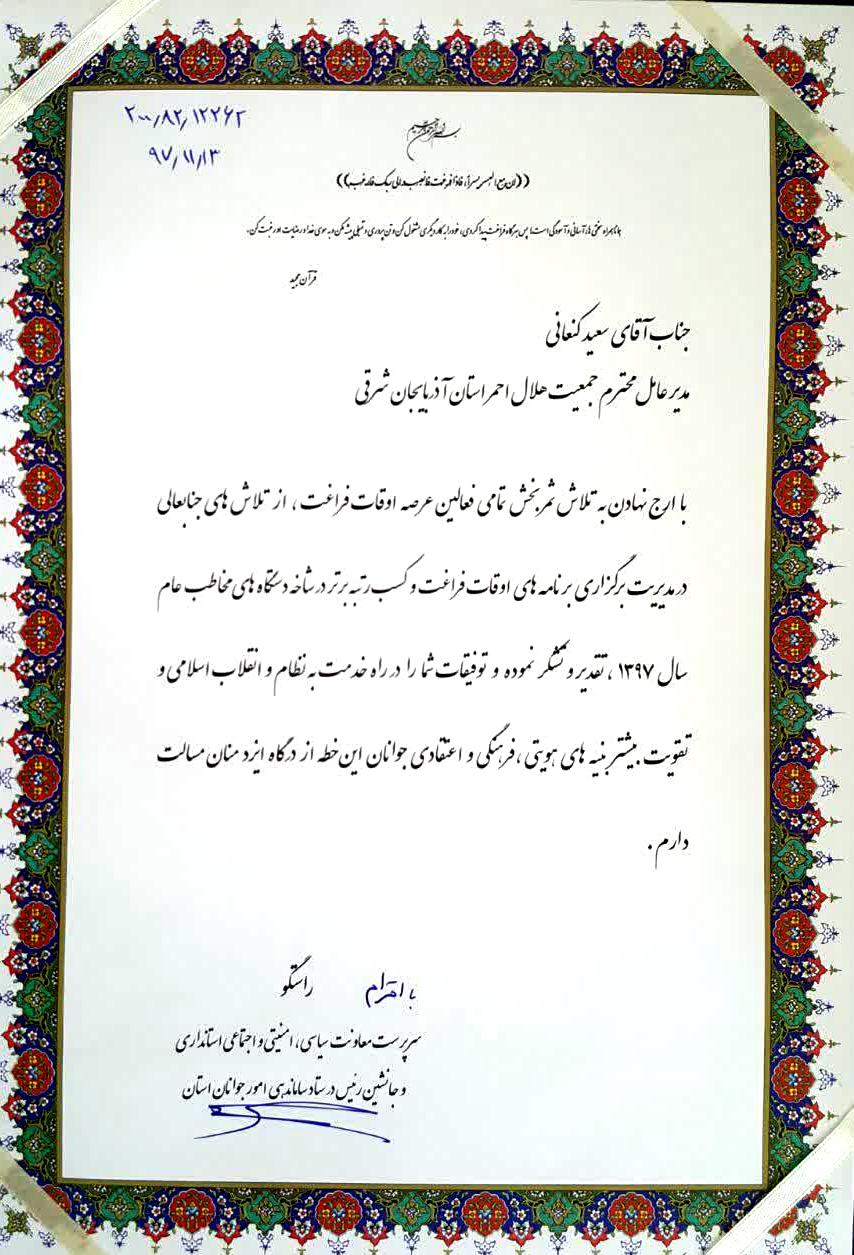 ۲۰۰/۸۲/۱۲۲۶۲
۹۷/۱۱/۱۳
بسم الله الرحمن الرحیم
((ان مع العسر یسرا، فاذا فرغت فانصب و الی ربک فارغب))
همانا همراه سختی ها، آسانی و آسودگی است؛ پس هرگاه فراغت پیدا کردی، خود را به کار دیگری مشغول کن و تن پروری و تنبلی پیشه مکن و به سوی خدا و رضایت او رغبت کن.
قرآن مجید
جناب آقای سعید کنعانی
مدیر عامل محترم جمعیت هلال احمر استان آذربایجان شرقی
با ارج نهادن به تلاش ثمربخش تمامی فعالین عرصه اوقات فراغت، از تلاش های جنابعالی
در مدیریت برگزاری برنامه های اوقات فراغت و کسب رتبه برتر در شاخه دستگاه های مخاطب عام
سال ۱۳۹۷، تقدیر و تشکر نموده و توفیقات شما را در راه خدمت به نظام و انقلاب اسلامی و
تقویت بیشتر بنیه های هویتی، فرهنگی و اعتقادی جوانان این خطه از درگاه ایزد منان مسالت
دارم.
با احترام راستگو
سرپرست معاونت سیاسی، امنیتی و اجتماعی استانداری
و جانشین رئیس در ستاد ساماندهی امور جوانان استان